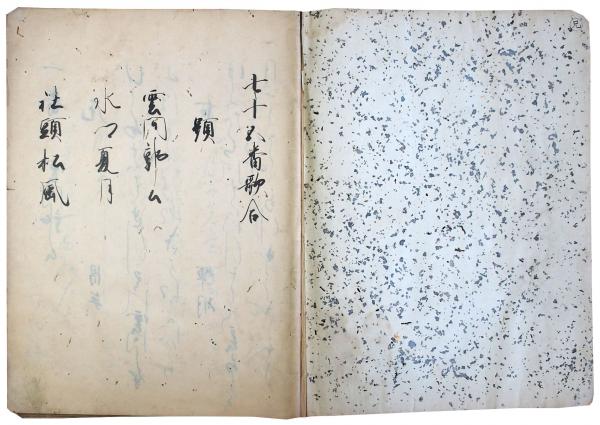 七十五番歌合
題
雲間郭公
夏月
社頭松風